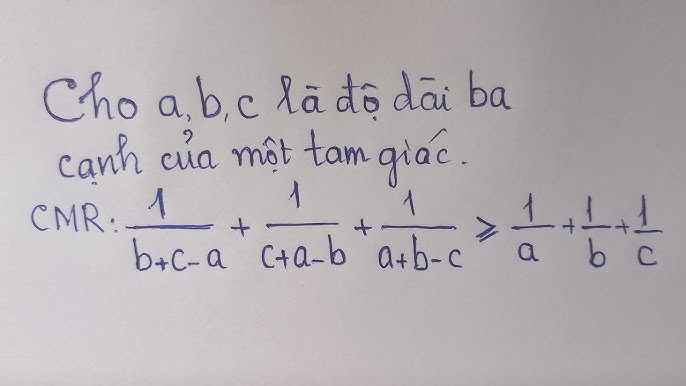 Cho a, b, c là độ dài ba
cạnh của một tam giác.
CMR: 1/(b+c-a) + 1/(c+a-b) + 1/(a+b-c) ≥ 1/a + 1/b + 1/c